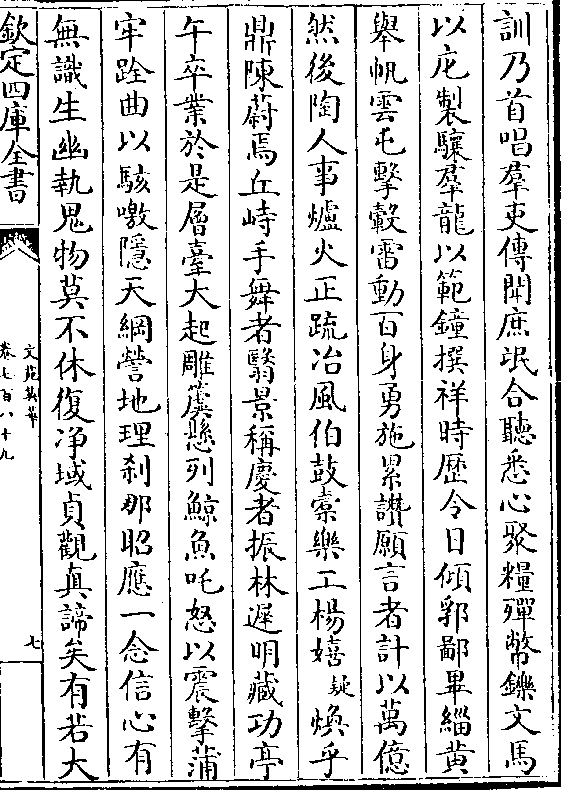 訓乃首唱羣吏傳聞庶氓合聽悉心聚糧殫幣鑠文馬
以庀製驤羣龍以範鐘撰祥時歴令日傾郛鄙畢緇黄
舉帆雲屯擊轂雷動百身勇施累讚願言者計以萬億
然後陶人事爐火正䟽冶風伯鼓橐樂工楊嬉疑煥乎
鼎陳蔚焉丘峙手舞者翳景稱慶者振林遲明藏功亭
午卒業於是層臺大起雕簴懸列鯨魚吒怒以震擊蒲
牢跧曲以駭噭隱天綱營地理刹那昭應一念信心有
無識生幽執鬼物莫不休復浄域貞觀真諦矣有若大
欽定四庫全書
文苑英華
卷七百八十九
七